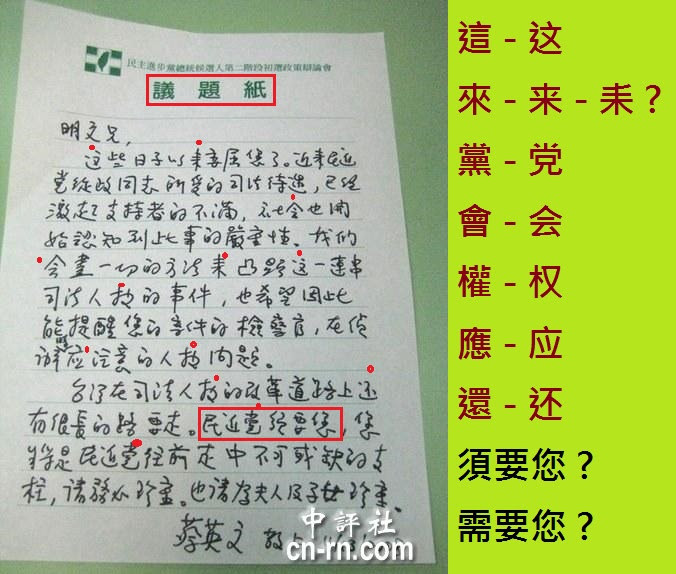 民主進步黨總統候選人第二階段初選政策辯論會
議題紙
明文兄,
这些日子以来委屈您了。近来民近
党從政同志所受的司法待遇,已經
激起支持者的不滿,社会也開
始認知到此事的嚴重性。我們
会盡一切的方法来凸顯这一連串
司法人权的事件,也希望因此
能提醒您的案件的檢警官,在偵
辦時应注意的人权問題。
台灣在司法人权的改革道路上还
有很長的路要走。民近党須要您,您
將是民近党往前走中不可或缺的支
柱,請務必珍重。也請夫人及子女珍重。
蔡英文 敬上
中評社
cn-rn.com
這 - 这
來 - 来 - 耒?
黨 - 党
會 - 会
權 - 权
應 - 应
還 - 还
須要您?
需要您?